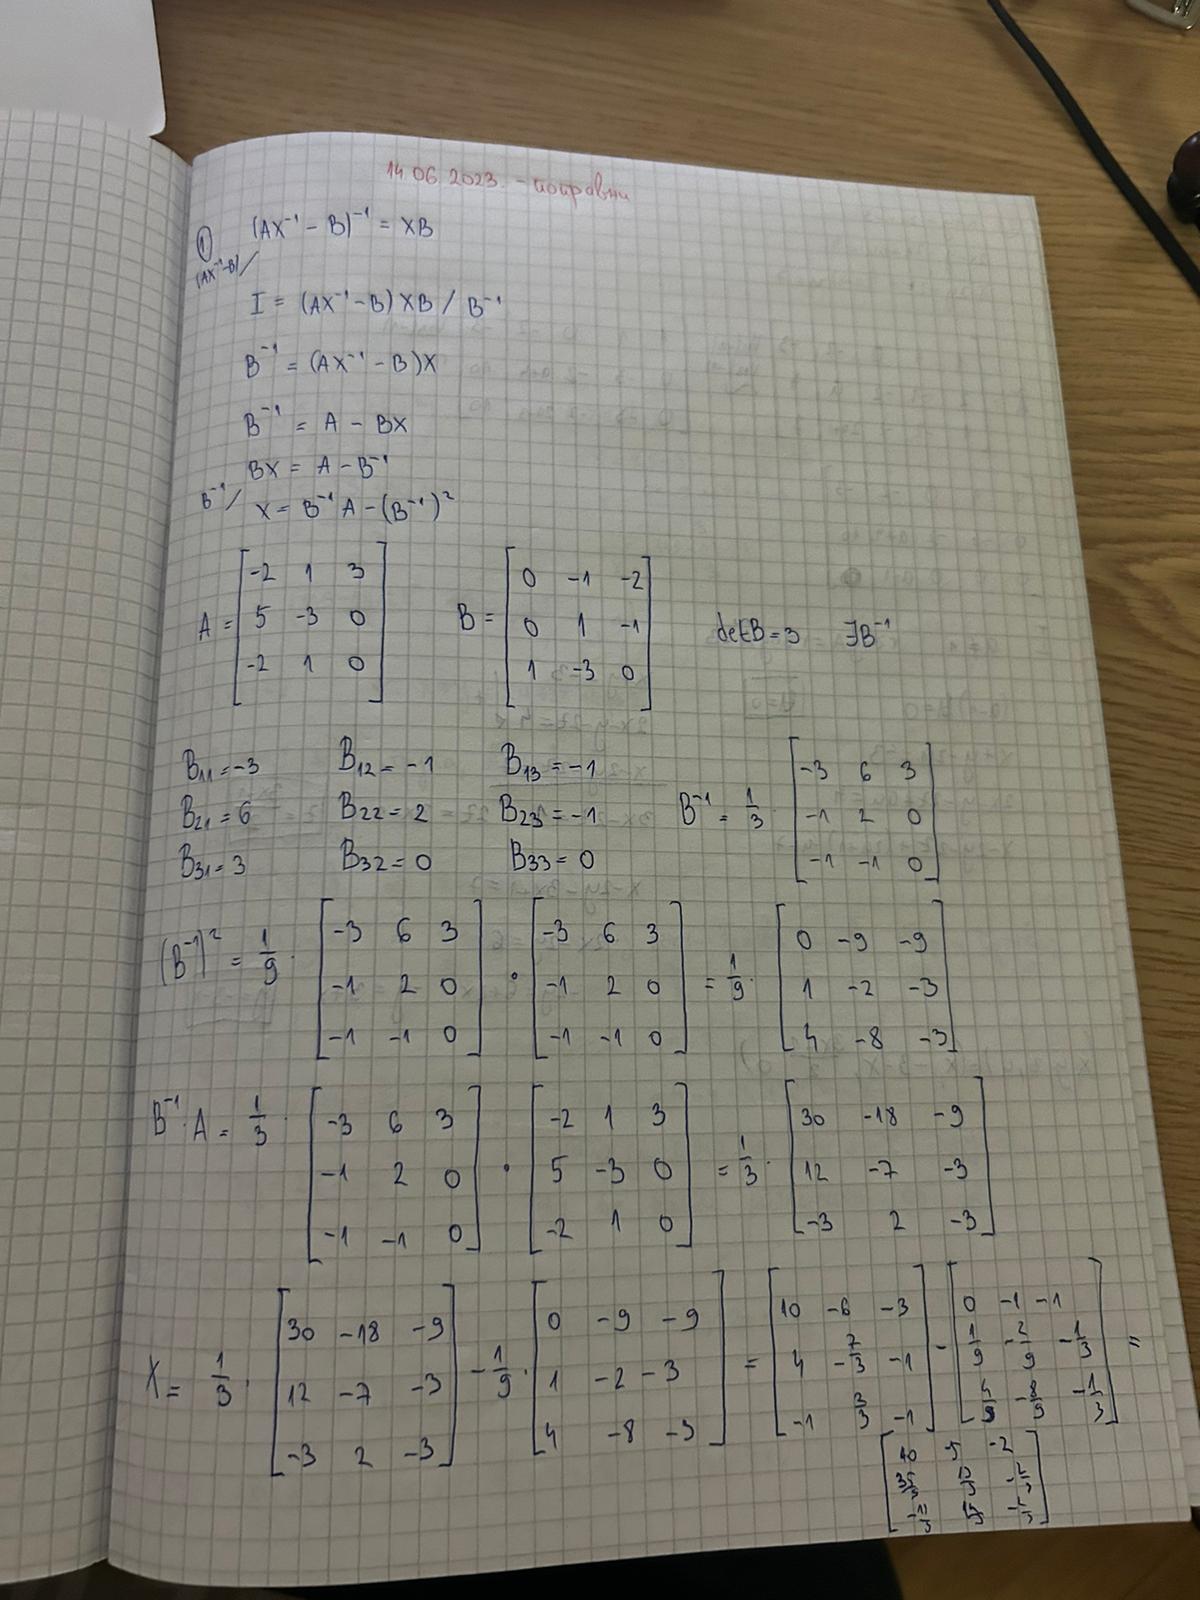 14.06.2023. - поправни
① (AX⁻¹ - B)⁻¹ = XB
(AX⁻¹-B) /
I = (AX⁻¹ - B) XB / B⁻¹
B⁻¹ = (AX⁻¹ - B)X
B⁻¹ = A - BX
BX = A - B⁻¹
B⁻¹/ X = B⁻¹A - (B⁻¹)²
A = [-2 1 3; 5 -3 0; -2 1 0] B = [0 -1 -2; 0 1 -1; 1 -3 0] detB = 3 ∃B⁻¹
B₁₁ = -3 B₁₂ = -1 B₁₃ = -1
B₂₁ = 6 B₂₂ = 2 B₂₃ = -1 B⁻¹ = 1/3 · [-3 6 3; -1 2 0; -1 -1 0]
B₃₁ = 3 B₃₂ = 0 B₃₃ = 0
(B⁻¹)² = 1/9 · [-3 6 3; -1 2 0; -1 -1 0] · [-3 6 3; -1 2 0; -1 -1 0] = 1/9 · [0 -9 -9; 1 -2 -3; 4 -8 -3]
B⁻¹·A = 1/3 · [-3 6 3; -1 2 0; -1 -1 0] · [-2 1 3; 5 -3 0; -2 1 0] = 1/3 · [30 -18 -9; 12 -7 -3; -3 2 -3]
X = 1/3 · [30 -18 -9; 12 -7 -3; -3 2 -3] - 1/9 · [0 -9 -9; 1 -2 -3; 4 -8 -3] = [10 -6 -3; 4 -7/3 -1; -1 2/3 -1] - [0 -1 -1; 1/9 -2/9 -1/3; 4/9 -8/9 -1/3] =
[10 -5 -2